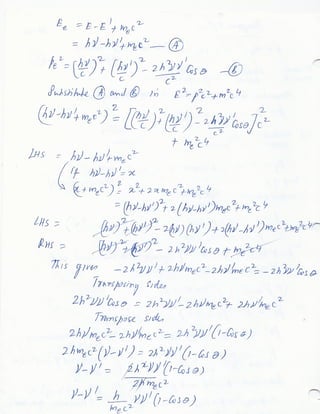 E_e = E - E' + m_e c²
= hν - hν' + m_e c² — Ⓐ
p_e² = (hν/c)² + (hν'/c)² - 2h²νν'/c² Cos θ — Ⓑ
Substitute Ⓐ and Ⓑ in E² = p²c² + m²c⁴
(hν - hν' + m_e c²)² = [(hν/c)² + (hν'/c)² - 2h²νν'/c² Cos θ] c²
+ m_e²c⁴
LHS = hν - hν' + m_e c²
If hν - hν' = x
(x + m_e c²)² = x² + 2x m_e c² + m_e²c⁴
= (hν - hν')² + 2(hν - hν') m_e c² + m_e²c⁴
LHS = (hν)² + (hν')² - 2(hν)(hν') + 2(hν - hν') m_e c² + m_e²c⁴
RHS = (hν)² + (hν')² - 2h²νν' Cos θ + m_e²c⁴
This gives - 2h²νν' + 2hν m_e c² - 2hν' m_e c² = - 2h²νν' Cos θ
Transposing sides
2h²νν' Cos θ = 2h²νν' - 2hν m_e c² + 2hν' m_e c²
Transpose sides
2hν m_e c² - 2hν' m_e c² = 2h²νν' (1 - Cos θ)
2h m_e c² (ν - ν') = 2h²νν' (1 - Cos θ)
ν - ν' = 2h²νν' (1 - Cos θ) / 2h m_e c²
ν - ν' = h / m_e c² νν' (1 - Cos θ)